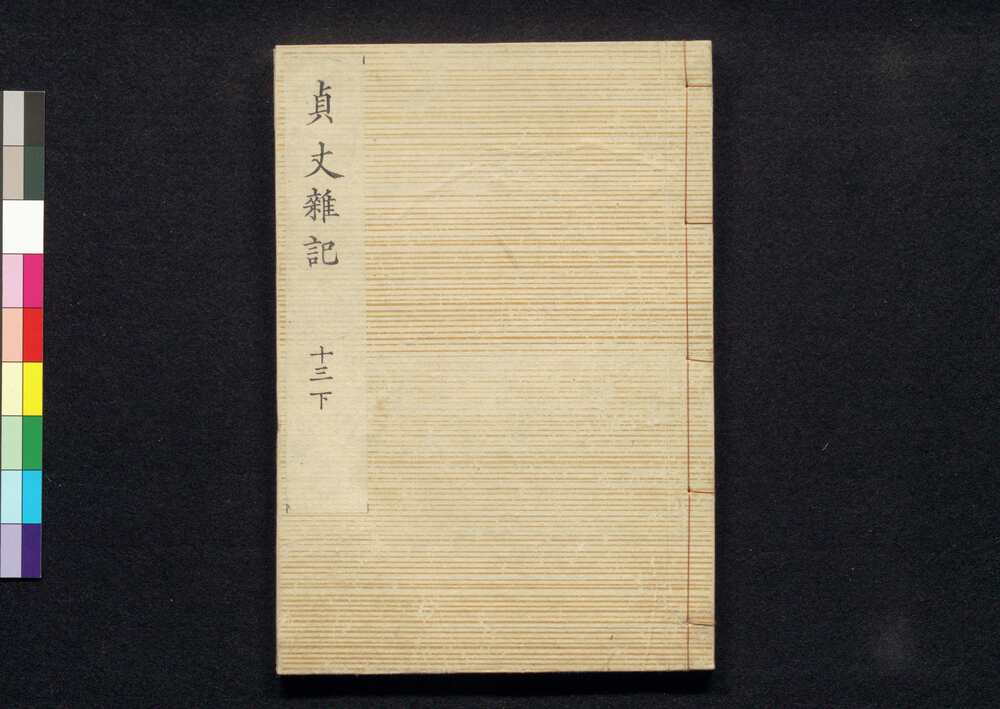 貞丈雜記 十三下